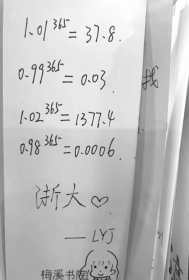 1.01³⁶⁵=37.8.
0.99³⁶⁵=0.03
1.02³⁶⁵=1377.4
0.98³⁶⁵=0.0006.
浙大♡
——LYJ
梅溪书院
找